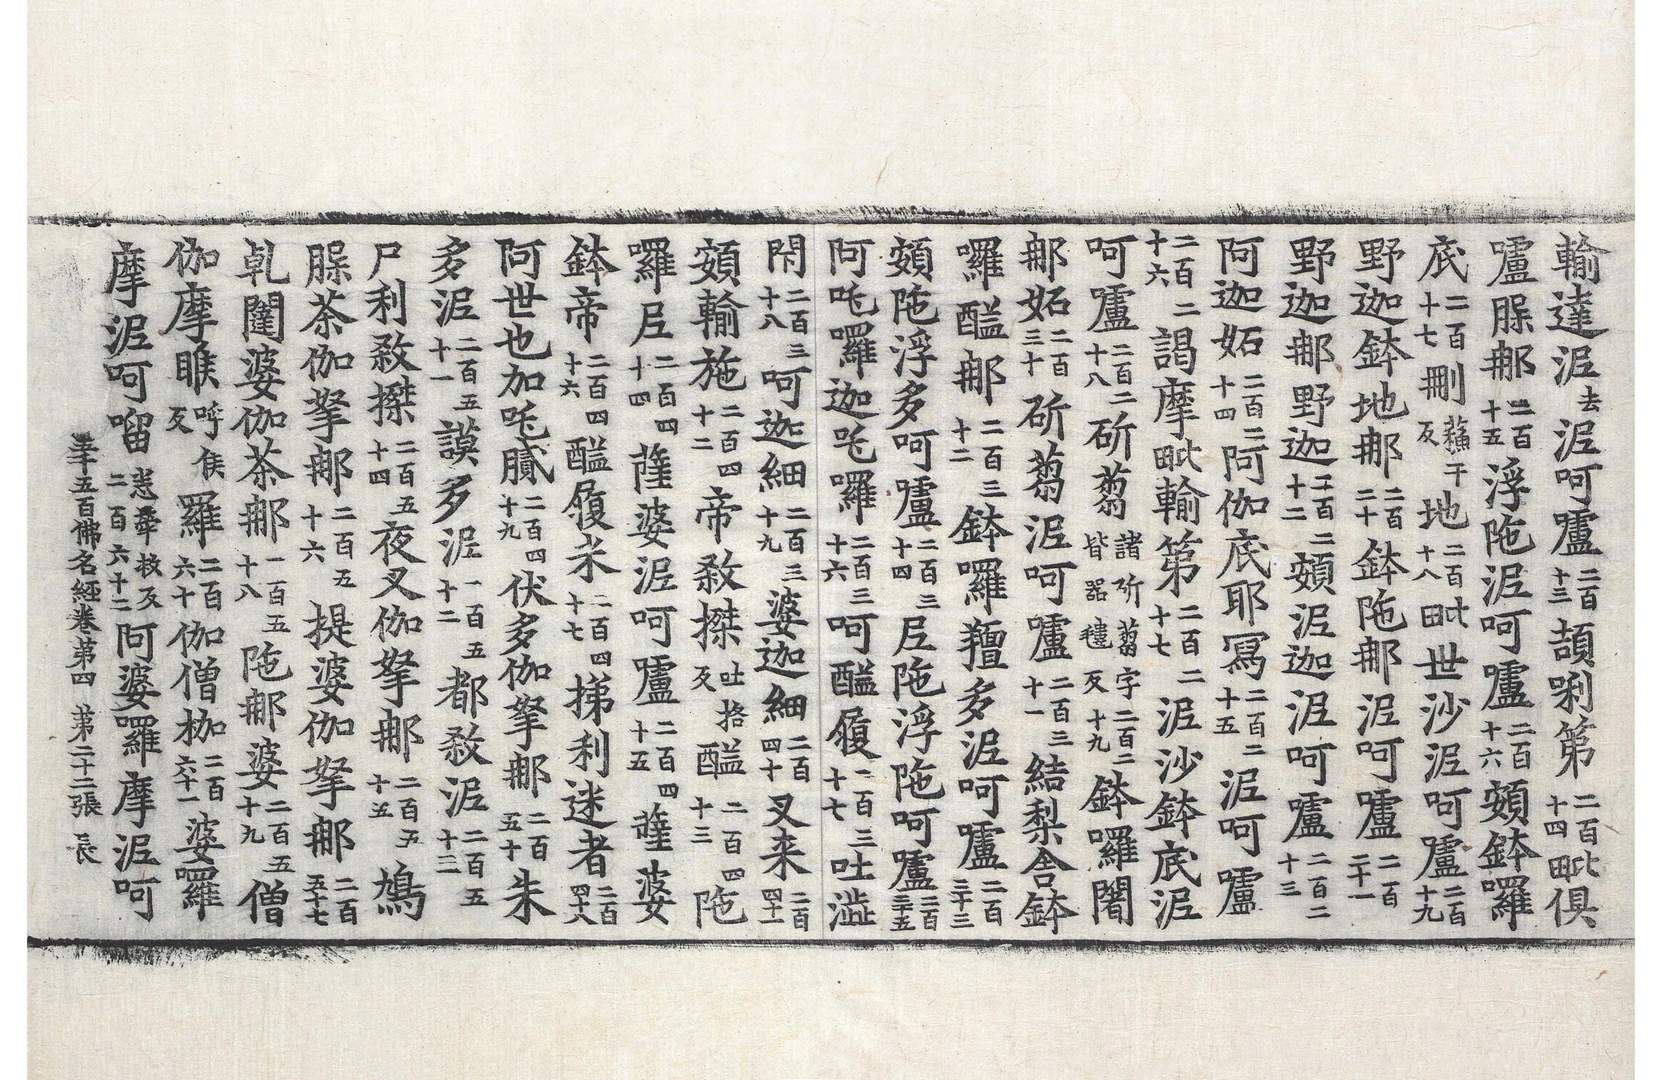 輸達泥去泥呵嚧二百十三頡唎第二百十四毗俱
嚧腂那二百十五浮陁泥呵嚧二百十六頞鉢羅
底二百十七刪蘓干反地二百十八毗世沙泥呵嚧二百十九
野迦鉢地那二百二十鉢陁那泥呵嚧二百二十一
野迦那野迦二百二十二頞泥迦泥呵嚧二百二十三
阿迦妬二百二十四阿伽底耶寫二百二十五泥呵嚧
二百二十六謁摩毗輸第二百二十七泥沙鉢底泥
呵嚧二百二十八斫蒭諸斫蒭字皆器反二百二十九鉢羅闍
那妬二百三十斫蒭泥呵嚧二百三十一結梨舍鉢
囉醯那二百三十二鉢囉羶多泥呵嚧二百三十三
頞陁浮多呵嚧二百三十四𡰱陁浮陁呵嚧二百三十五
阿吒囉迦吒囉二百三十六呵醯履二百三十七吐澁
閇二百三十八呵迦細二百三十九婆迦細二百四十叉来二百四十一
頞輸施二百四十二帝敎搩吐挌反醯二百四十三陁
囉𡰱二百四十四薩婆泥呵嚧二百四十五薩婆
鉢帝二百四十六醯履米二百四十七挮利迷者二百四十八
阿世也加吒膩二百四十九伏多伽拏那二百五十朱
多泥二百五十一謨多泥二百五十二都敎泥二百五十三
尸利敎搩二百五十四夜叉伽拏那二百五十五鳩
腂荼伽拏那二百五十六提婆伽拏那二百五十七
乹闥婆伽荼那二百五十八陁那婆二百五十九僧
伽摩睺呼侯反羅二百六十伽僧枷二百六十一婆囉
摩泥呵㗚二百六十二阿婆囉摩泥呵
五千五百佛名經卷第四 第二十二張 長